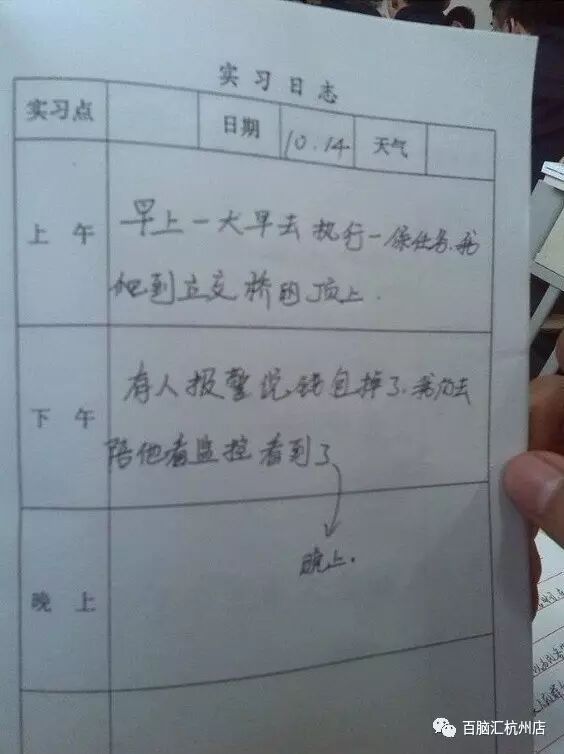 实习日志
实习点 日期 10.14 天气
上午
早上一大早去执行一级任务,我
爬到立交桥的顶上.
下午
有人报警说钱包掉了.我方去
陪他看监控看到了
晚上
晚上.
百脑汇杭州店